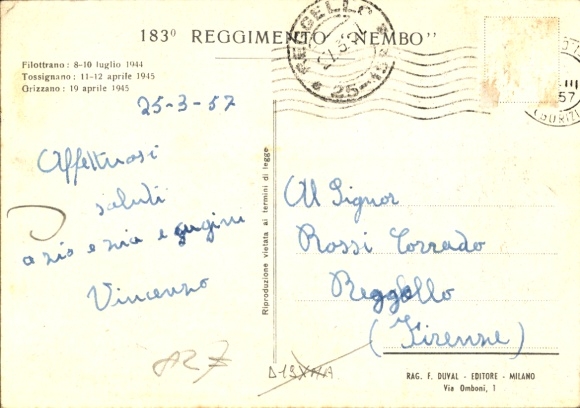 183º REGGIMENTO "NEMBO"
Filottrano: 8-10 luglio 1944
Tossignano: 11-12 aprile 1945
Grizzano: 19 aprile 1945
25-3-57
Affettuosi
saluti
a zio e zia e cugini
Vincenzo
Riproduzione vietata ai termini di legge
REGGELLO
Al Signor
Rossi Corrado
Reggello
(Firenze)
RAG. F. DUVAL - EDITORE - MILANO
Via Omboni, 1